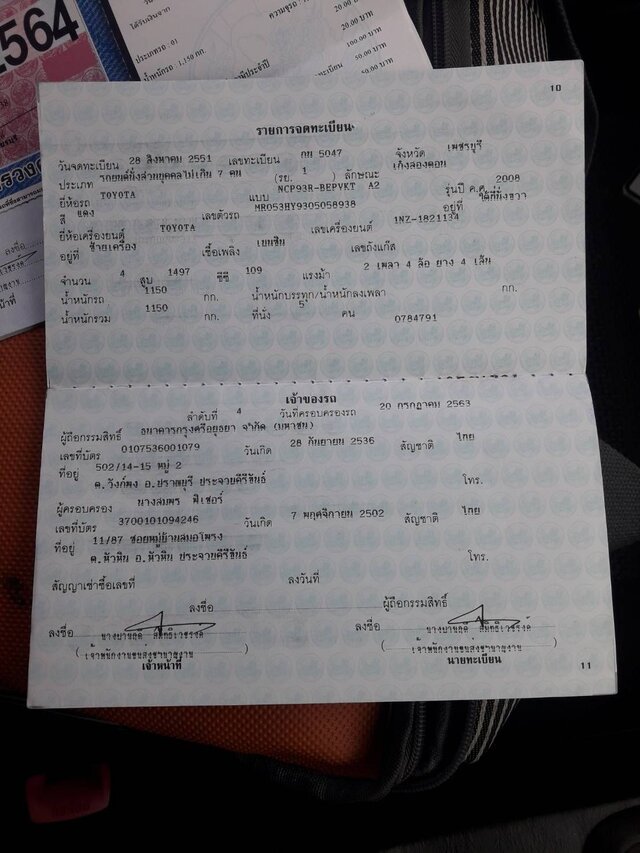 2564
ได้รับเงินจาก
ประเภทรถ : 01
น้ำหนักรถ : 1,150 กก.
20.00 บาท
100.00 บาท
50.00 บาท
50.00 บาท
10
รายการจดทะเบียน
วันจดทะเบียน 28 สิงหาคม 2551 เลขทะเบียน กน 5047 จังหวัด เพชรบุรี
ประเภท รถยนต์นั่งส่วนบุคคลไม่เกิน 7 คน (รย. 1 ) ลักษณะ เก๋งสองตอน
ยี่ห้อรถ TOYOTA แบบ NCP93R-BEPVKT A2 รุ่นปี ค.ศ. 2008
สี แดง เลขตัวรถ MR053HY9305058938 อยู่ที่ ใต้ที่นั่งขวา
ยี่ห้อเครื่องยนต์ TOYOTA เลขเครื่องยนต์ 1NZ-1821134
อยู่ที่ ซ้ายเครื่อง เชื้อเพลิง เบนซิน เลขถังแก๊ส
จำนวน 4 สูบ 1497 ซีซี 109 แรงม้า 2 เพลา 4 ล้อ ยาง 4 เส้น
น้ำหนักรถ 1150 กก. น้ำหนักบรรทุก/น้ำหนักลงเพลา กก.
น้ำหนักรวม 1150 กก. ที่นั่ง 5 คน 0784791
เจ้าของรถ
ลำดับที่ 4 วันที่ครอบครองรถ 20 กรกฎาคม 2563
ผู้ถือกรรมสิทธิ์ ธนาคารกรุงศรีอยุธยา จำกัด (มหาชน)
เลขที่บัตร 0107536001079 วันเกิด 28 กันยายน 2536 สัญชาติ ไทย
ที่อยู่ 502/14-15 หมู่ 2
ต.วังก์พง อ.ปราณบุรี ประจวบคีรีขันธ์ โทร.
ผู้ครอบครอง นางสมพร ฟิเชอร์
เลขที่บัตร 3700101094246 วันเกิด 7 พฤศจิกายน 2502 สัญชาติ ไทย
ที่อยู่ 11/87 ซอยหมู่บ้านสมอโพรง
ต.หัวหิน อ.หัวหิน ประจวบคีรีขันธ์ โทร.
สัญญาเช่าซื้อเลขที่ ลงวันที่
ลงชื่อ ผู้ถือกรรมสิทธิ์
ลงชื่อ ลงชื่อ
เจ้าหน้าที่ นายทะเบียน
11